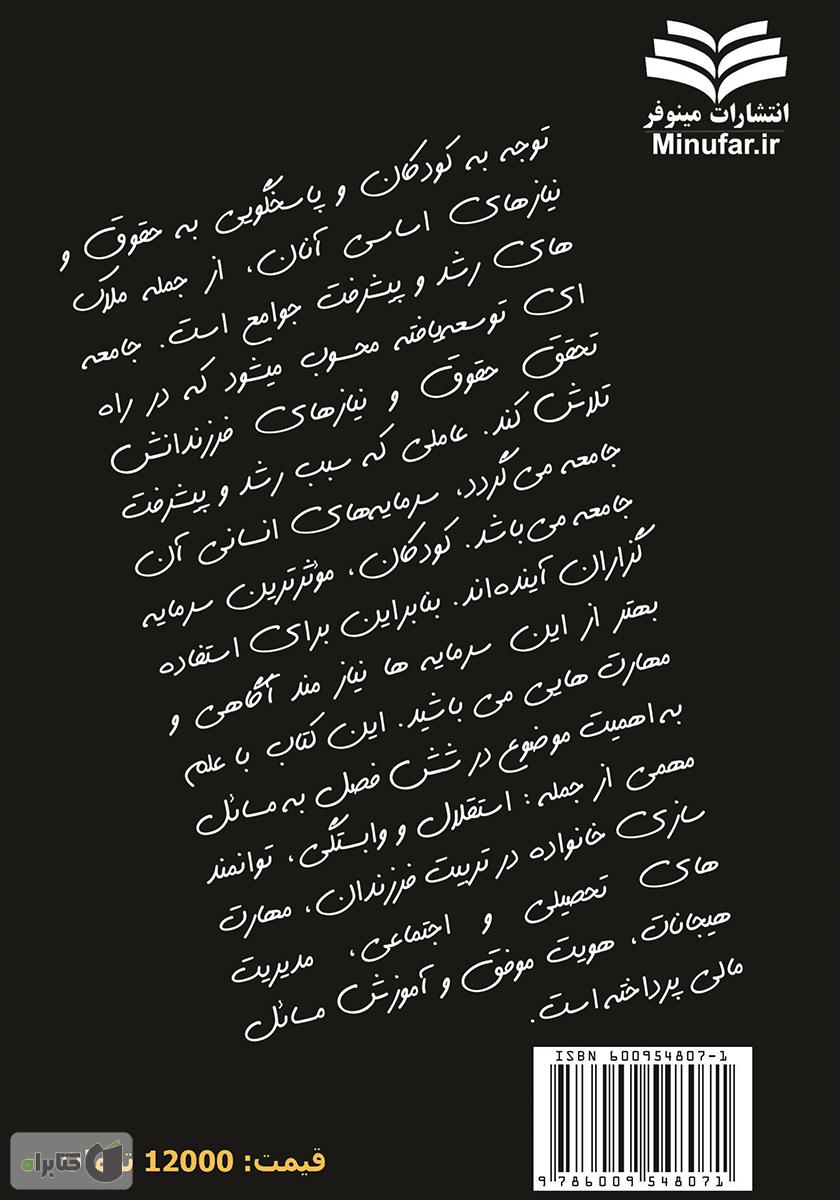 انتشارات مینوفر
Minufar.ir
توجه به کودکان و پاسخگویی به حقوق و
نیازهای اساسی آنان، از جمله ملاک
های رشد و پیشرفت جوامع است. جامعه
ای توسعه‌یافته محسوب میشود که در راه
تحقق حقوق و نیازهای فرزندانش
تلاش کند. عاملی که سبب رشد و پیشرفت
جامعه می گردد، سرمایه‌های انسانی آن
جامعه می باشد. کودکان، موثرترین سرمایه
گزاران آینده‌اند. بنابراین برای استفاده
بهتر از این سرمایه ها نیاز مند آگاهی و
مهارت هایی می باشید. این کتاب با علم
به اهمیت موضوع در شش فصل به مسائل
مهمی از جمله: استقلال و وابستگی، توانمند
سازی خانواده در تربیت فرزندان، مهارت
های تحصیلی و اجتماعی، مدیریت
هیجانات، هویت موفق و آموزش مسائل
مالی پرداخته است.
ISBN 600954807-1
9 786009 548071
قیمت: 12000
کتابراه